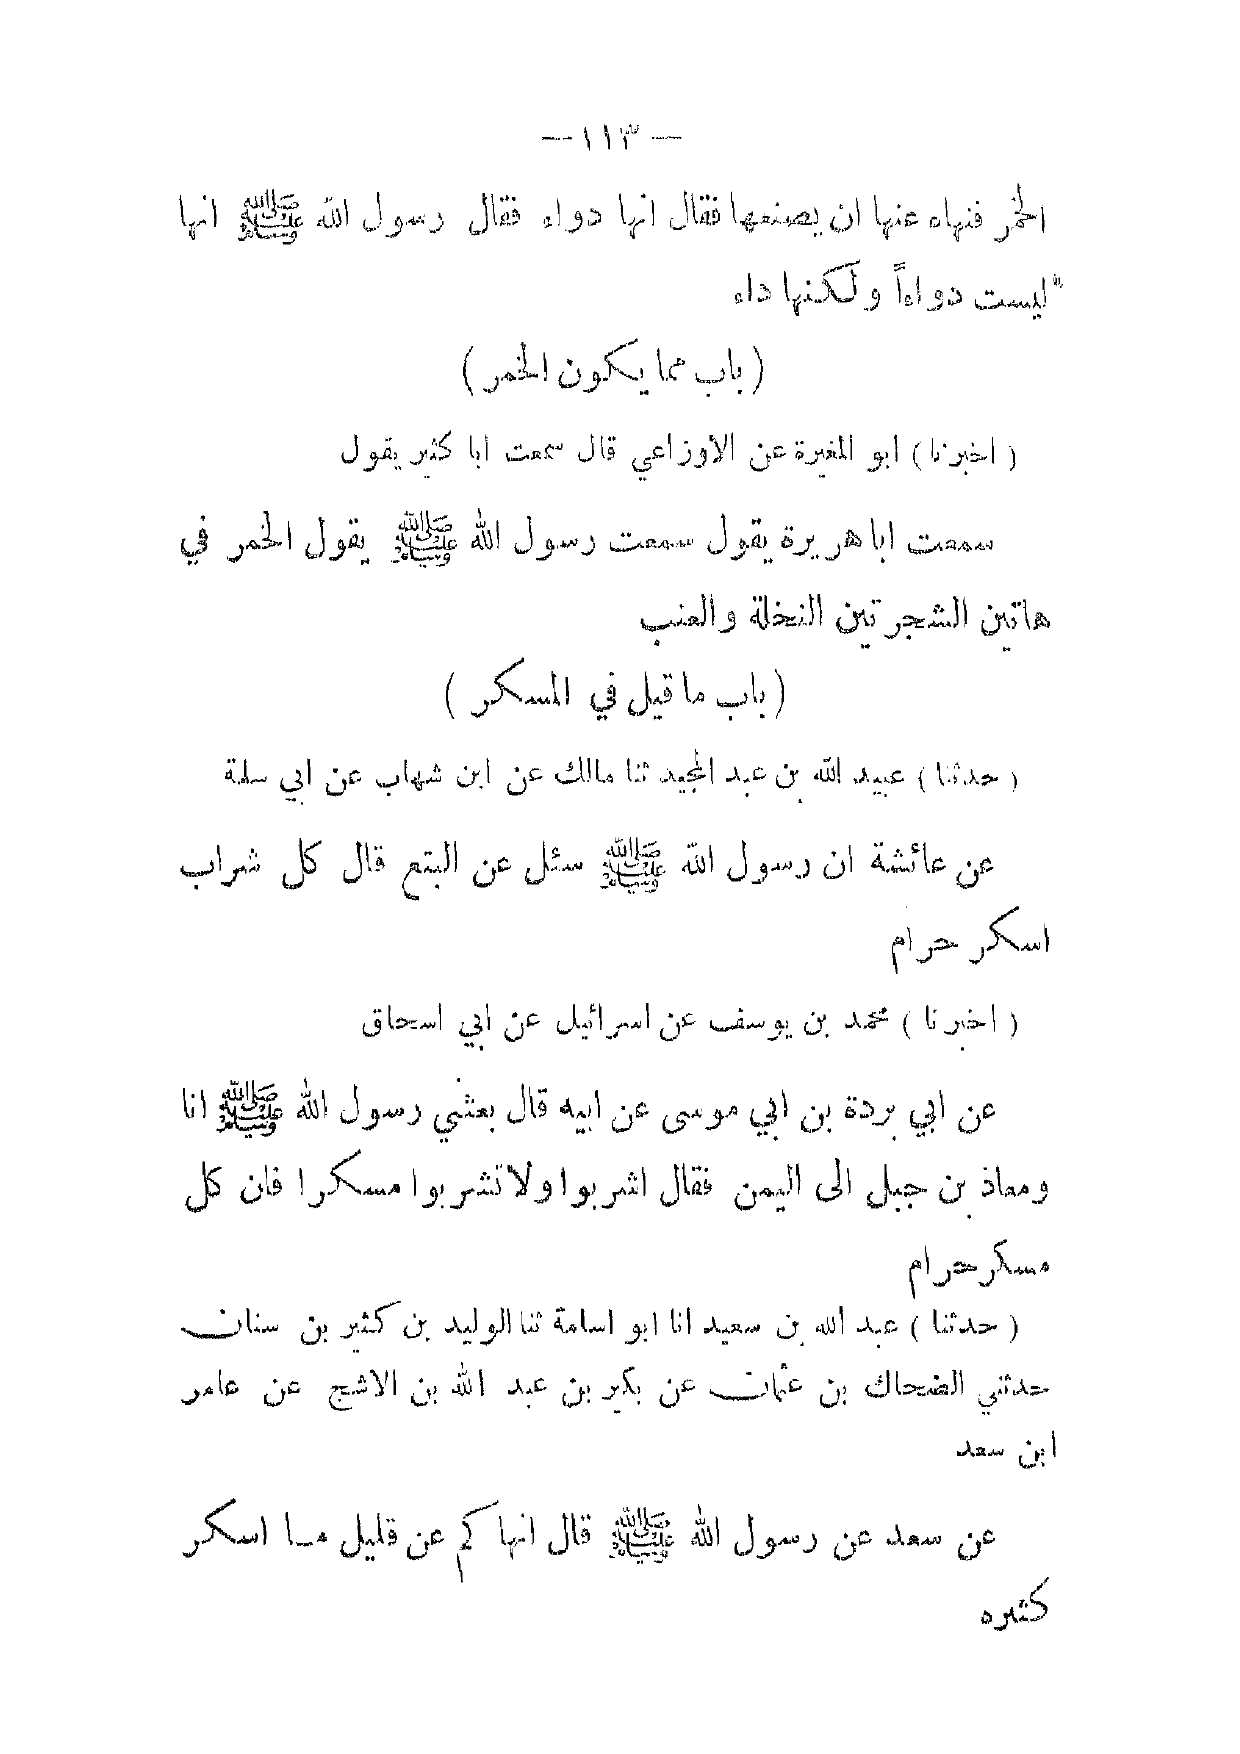 — ١١٣ —
الخمر فنهاه عنها ان يصنعها فقال انها دواء فقال رسول الله ﷺ انها
ليست دواءاً ولكنها داء
( باب مما يكون الخمر )
( اخبرنا ) ابو المغيرة عن الاوزاعي قال سمعت ابا كثير يقول
سمعت اباهريرة يقول سمعت رسول الله ﷺ يقول الخمر في
هاتين الشجرتين النخلة والعنب
( باب ما قيل في المسكر )
( حدثنا ) عبيد الله بن عبد المجيد ثنا مالك عن ابن شهاب عن ابي سلمة
عن عائشة ان رسول الله ﷺ سئل عن البتع قال كل شراب
اسكر حرام
( اخبرنا ) محمد بن يوسف عن اسرائيل عن ابي اسحاق
عن ابي بردة بن ابي موسى عن ابيه قال بعثني رسول الله ﷺ انا
ومعاذ بن جبل الى اليمن فقال اشربوا ولا تشربوا مسكرا فان كل
مسكر حرام
( حدثنا ) عبد الله بن سعيد انا ابو اسامة ثنا الوليد بن كثير بن سنان
حدثني الضحاك بن عثمان عن بكير بن عبد الله بن الاشج عن عامر
ابن سعد
عن سعد عن رسول الله ﷺ قال انهاكم عن قليل ما اسكر
كثيره